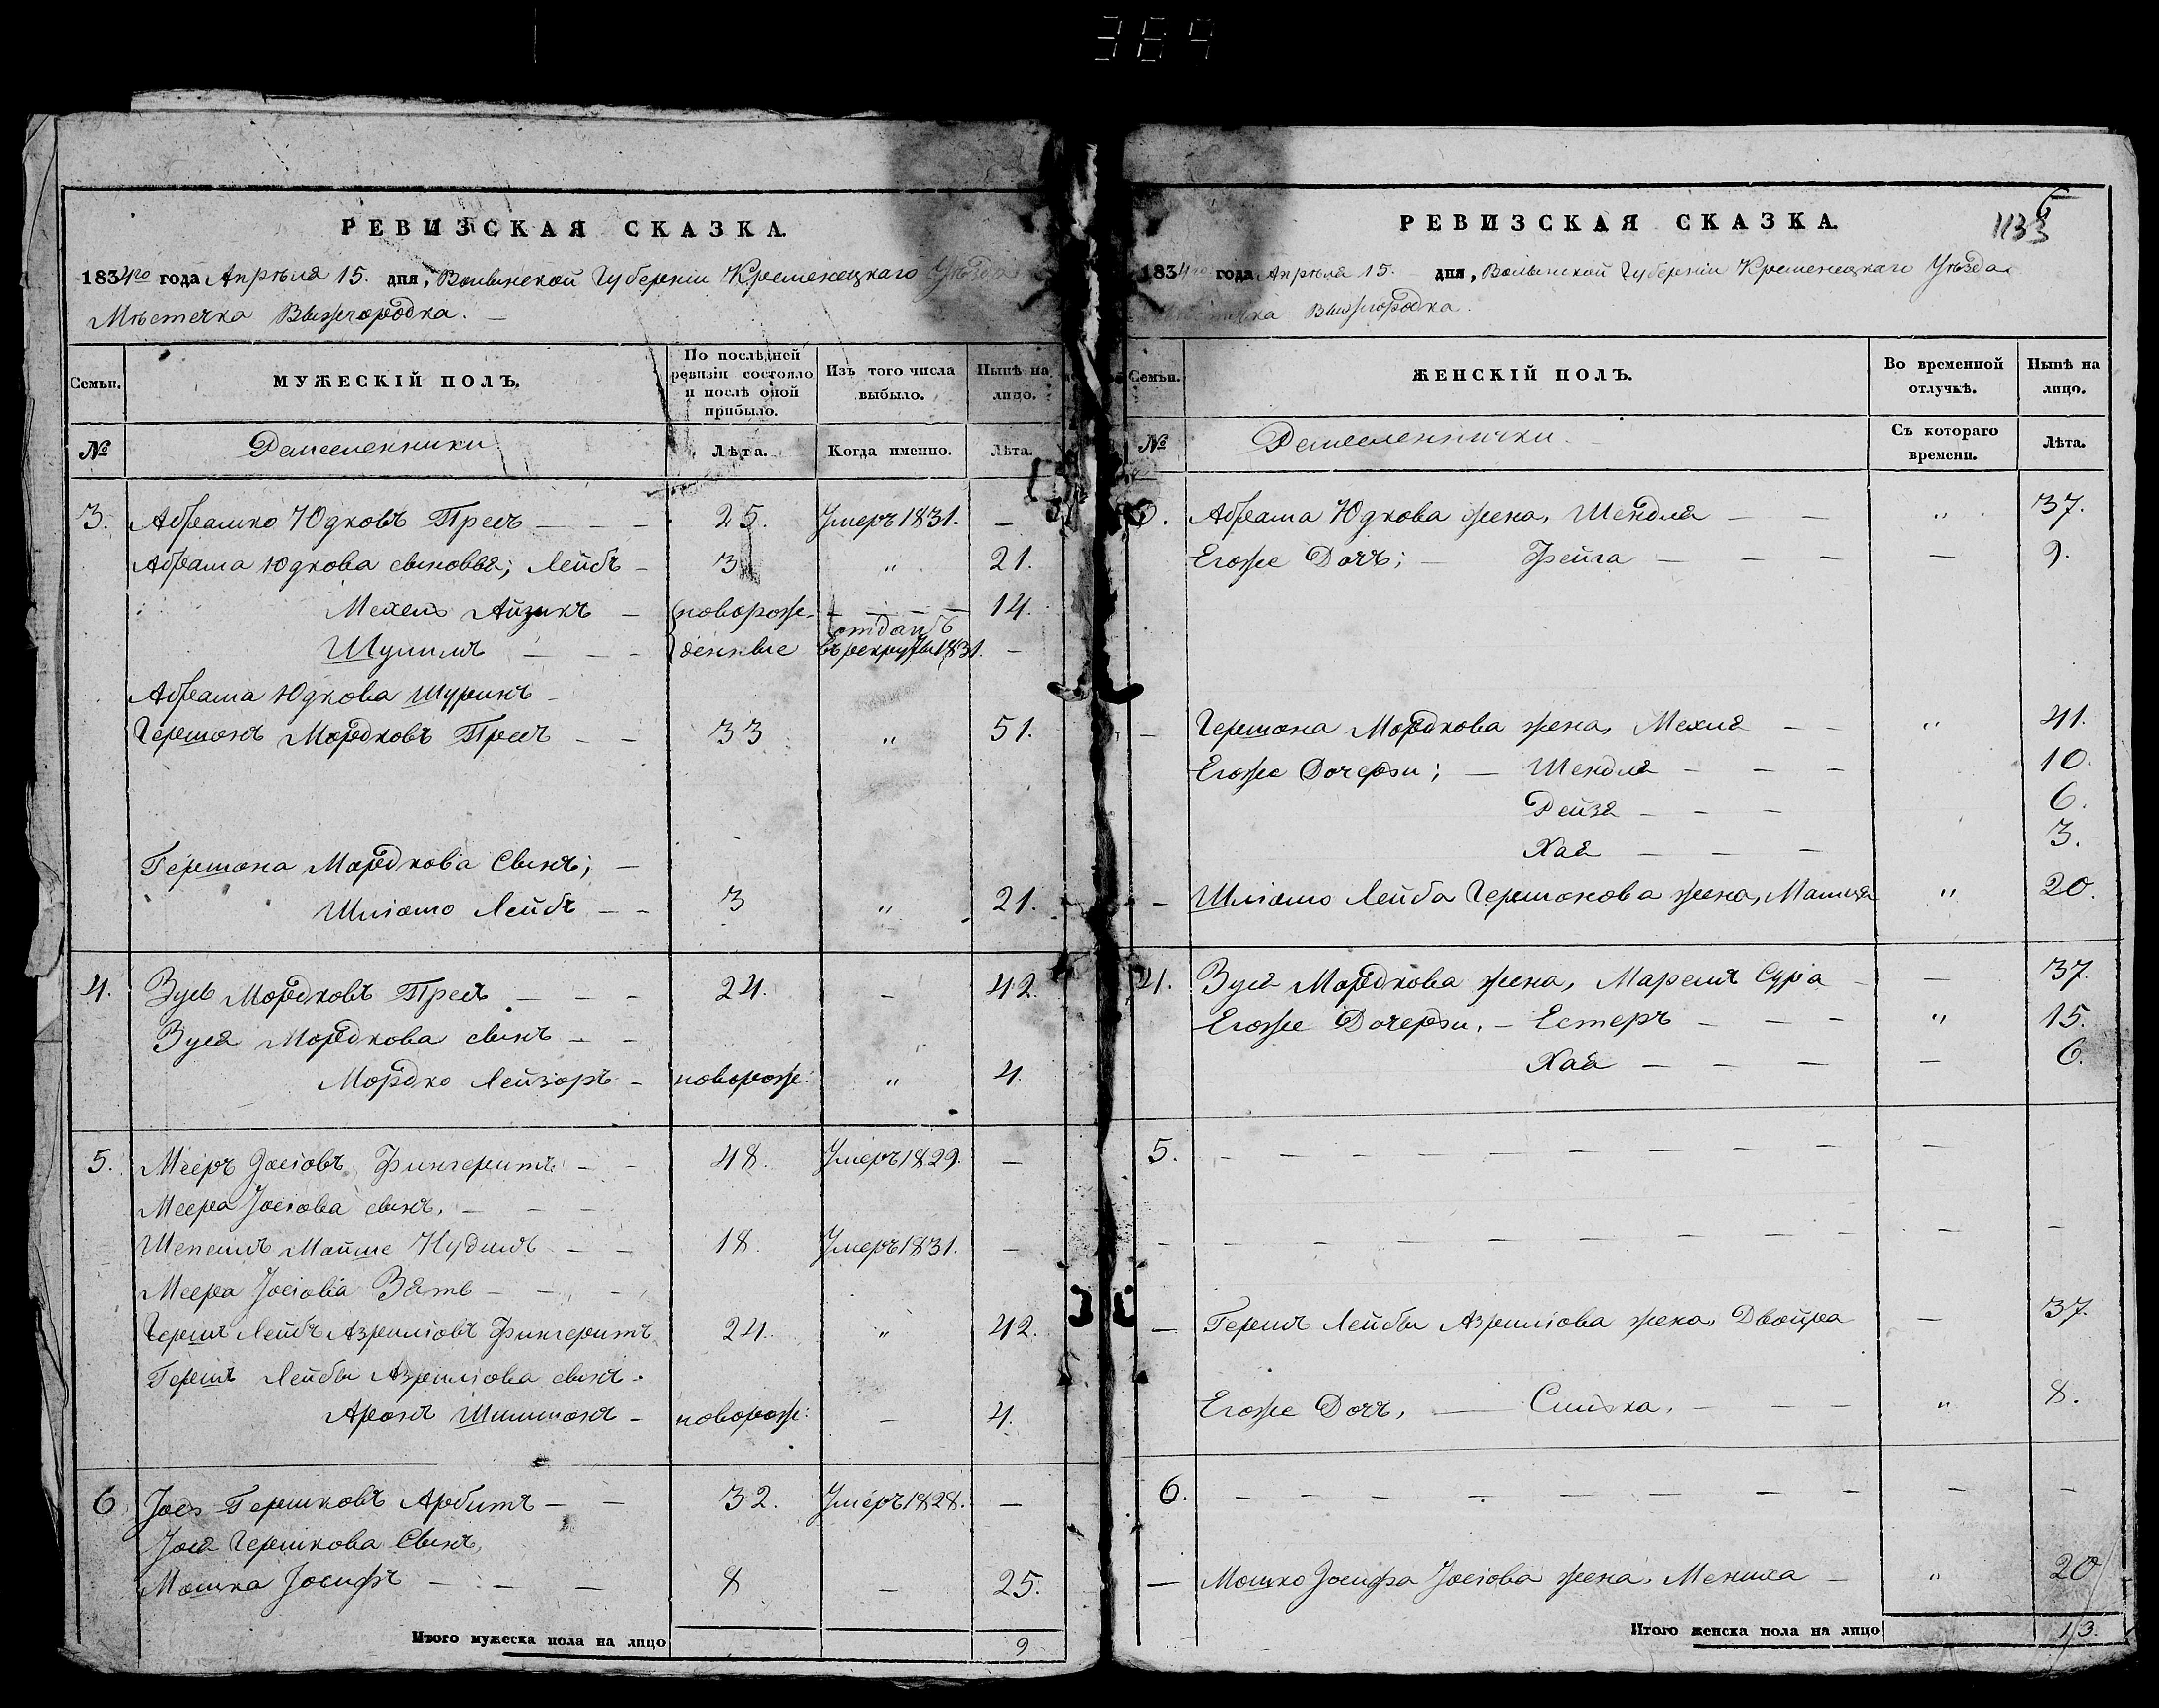 369
РЕВИЗСКАЯ СКАЗКА.
1834го года Апрѣля 15. дня, Волынской Губерніи Кременецкаго Уѣзда
Мѣстечка Выжгородка.
Семьи. МУЖЕСКІЙ ПОЛЪ. По послѣдней ревизіи состояло и послѣ оной прибыло. Изъ того числа выбыло. Нынѣ на лицо.
№ Ремесленники Лѣта. Когда именно. Лѣта.
3. Абрамко Юдковъ Пресъ — — — 25. Умеръ 1831. —
Абрама Юдкова сыновья; Лейбъ — 3 " 21.
Мехель Айзикъ — новорож- — — — 14.
Шулимъ — — — денные отданъ въ рекруты 1831. —
Абрама Юдкова Шуринъ —
Гершонъ Мордковъ Пресъ — — 33 " 51.
Гершона Мордкова Сынъ; —
Шліомо Лейбъ — — 3 " 21.
4. Зусь Мордковъ Пресъ — — — 24. — 42.
Зуся Мордкова сынъ — —
Мордко Лейзоръ — новорож: " 4.
5. Мееръ Іосіовъ Фингерутъ — — 48. Умеръ 1829. —
Меера Іосіова сынъ, — — —
Шепсель Мойше Нудель — — 18. Умеръ 1831. —
Меера Іосіова Зять — — —
Гершъ Лейбъ Азриліовъ Фингерутъ 24. " 42.
Гершъ Лейбы Азриліова сынъ —
Аронъ Шимшонъ — новорож: — 4.
6 Іось Гершковъ Арбитъ — — 32. Умеръ 1828. —
Іося Гершкова Сынъ,
Мошка Іосифъ — — — 8 — 25.
Итого мужеска пола на лицо 9
6
1133
РЕВИЗСКАЯ СКАЗКА.
1834го года Апрѣля 15. дня, Волынской Губерніи Кременецкаго Уѣзда
Мѣстечка Выжгородка.
Семьи. ЖЕНСКІЙ ПОЛЪ. Во временной отлучкѣ. Нынѣ на лицо.
№ Ремесленнички Съ котораго времени. Лѣта.
3. Абрама Юдкова жена, Шендля — — " 37.
Егоже Дочь; — Фейга — — — — 9.
— Гершона Мордкова жена, Мехля — — " 41.
Егоже Дочери; — Шендля — — — 10.
Рейзя — — — 6.
Хая — — — 3.
— Шліомо Лейба Гершонова жена, " 20.
4. Зуся Мордкова жена, Маремъ Сура — — 37.
Егоже Дочери. — Естеръ — — — " 15.
Хая — — — — 6.
5. — — — — — — — — — —
— — — — — — — — — — —
— Гершъ Лейбы Азриліова жена, Двойра — 37.
Егоже Дочь, — — — — " 8.
6. — — — — — — — — — —
— Мошко Іосифа Іосіова жена, Мениха — " 20
Итого женска пола на лицо 13.